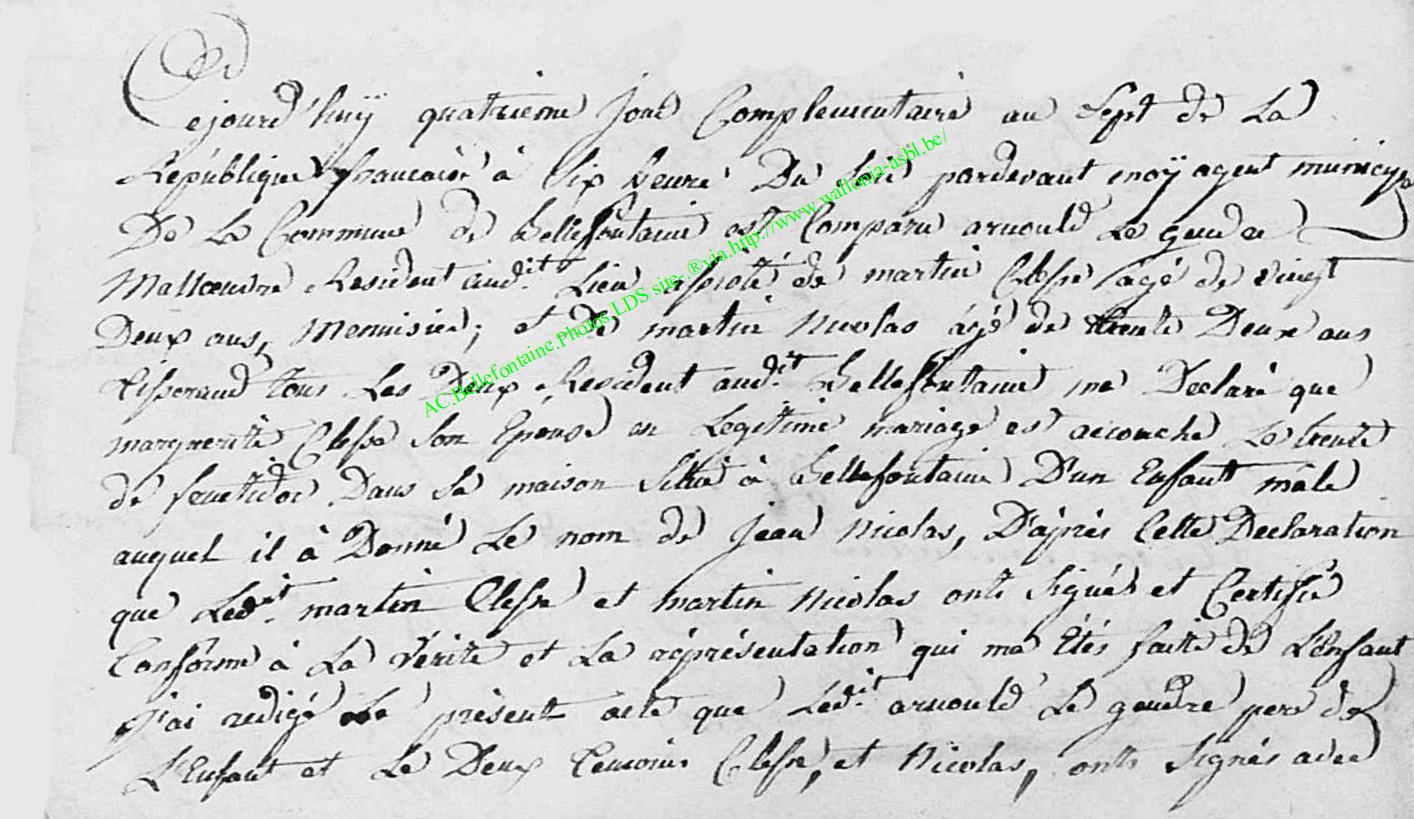 Cejourd'huy quatrieme jour Complementaire an Sept de La
République francaise à Six heure Du Soir pardevant moÿ agent municip
De La Commune de Bellefontaine est Comparu arnould Le gendre
Resident aud.it Lieu assisté de martin Clesse âgé de vingt
Deux ans, Menuisier, et de martin Nicolas âgé de trente Deux ans
Tisserand tous Les Deux Resident aud.it Bellefontaine me Declaré que
marguerite Clesse Son Epouse en Legitime mariage est accouche Le trente
de fructidor Dans Sa maison Situé à Bellefontaine D'un Enfant mâle
auquel il à Donné Le nom de Jean Nicolas, D'après Cette Declaration
que Led.it martin Clesse et martin Nicolas onts Signés et Certifié
Conforme à La Vérité et La représentation qui ma Étés faite de L'Enfant
J'ai redigé Le présent acte que Led.it arnould Le gendre pere de
L'Enfant et Le Deux Temoins Clesse, et Nicolas, onts Signés avec
AC.Bellefontaine.Photos.LDS site-.®via.http://www.wallonia-asbl.be/